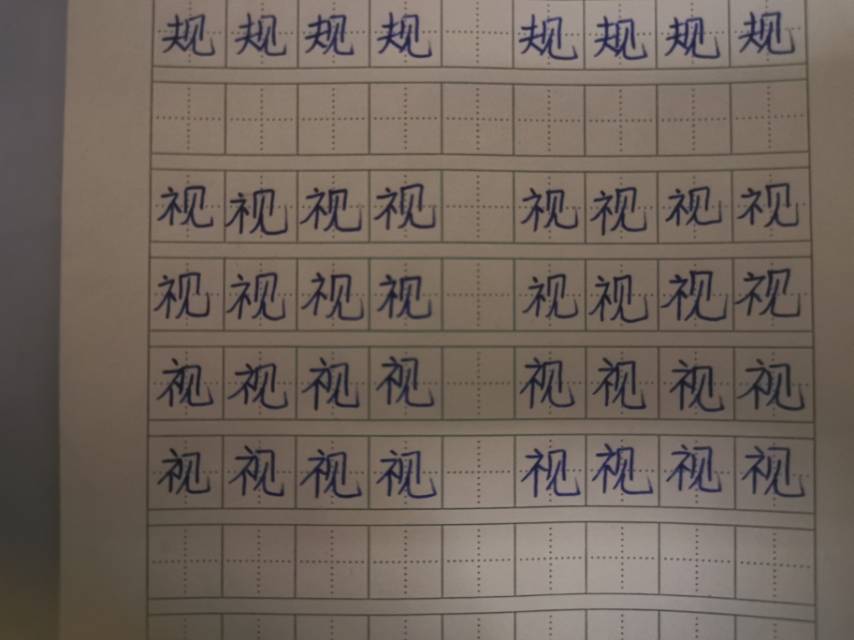 规规规规 规规规规
视视视视 视视视视
视视视视 视视视视
视视视视 视视视视
视视视视 视视视视